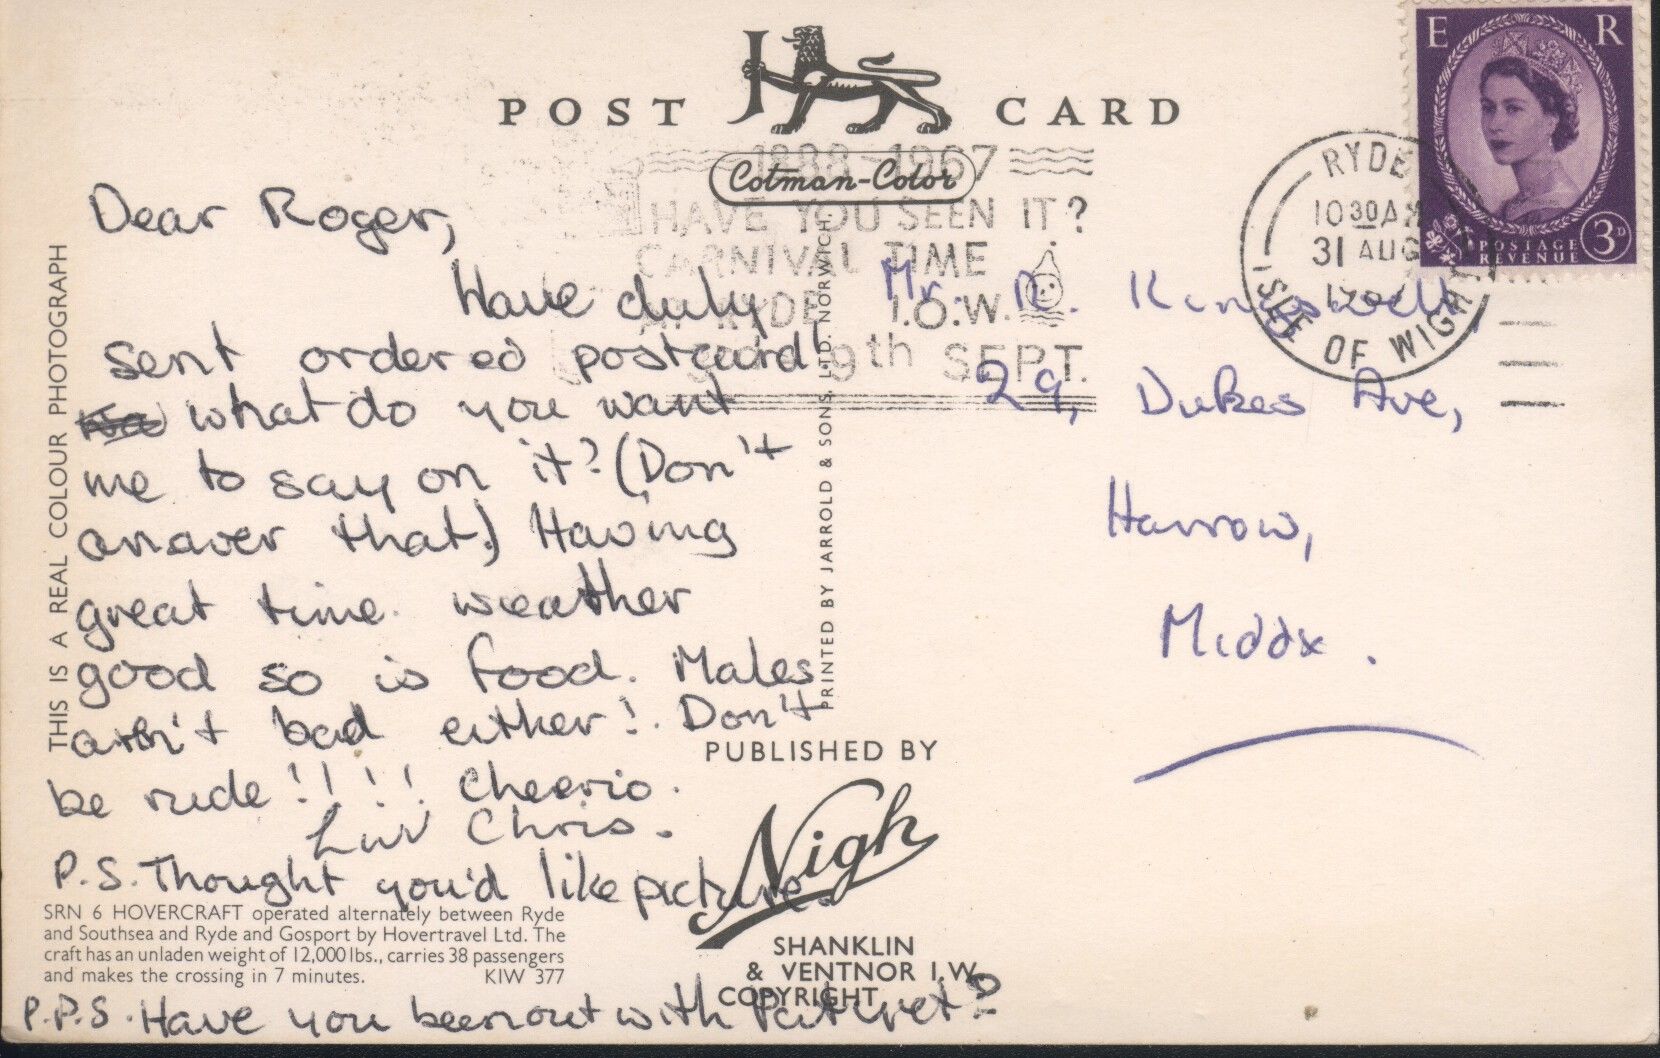 POST CARD
Cotman-Color
E R
POSTAGE 3D
REVENUE
1888-1967
HAVE YOU SEEN IT?
CARNIVAL TIME
AT RYDE I.O.W.
9th SEPT.
RYDE
10 30 AM
31 AUG
ISLE OF WIGHT
THIS IS A REAL COLOUR PHOTOGRAPH
Dear Roger,
Have duly
sent ordered postcard!
what do you want
me to say on it? (Don't
answer that.) Having
great time. weather
good so is food. Males
aren't bad either!. Don't
be rude!!!! Cheerio.
Luv Chris.
P.S. Thought you'd like picture.
SRN 6 HOVERCRAFT operated alternately between Ryde
and Southsea and Ryde and Gosport by Hovertravel Ltd. The
craft has an unladen weight of 12,000 lbs., carries 38 passengers
and makes the crossing in 7 minutes. KIW 377
P.P.S. Have you been out with Pat yet?
PRINTED BY JARROLD & SONS, LTD. NORWICH.
PUBLISHED BY
Nigh
SHANKLIN
& VENTNOR I.W.
COPYRIGHT
Mr. R. Kingswell,
29, Dukes Ave,
Harrow,
Middx.